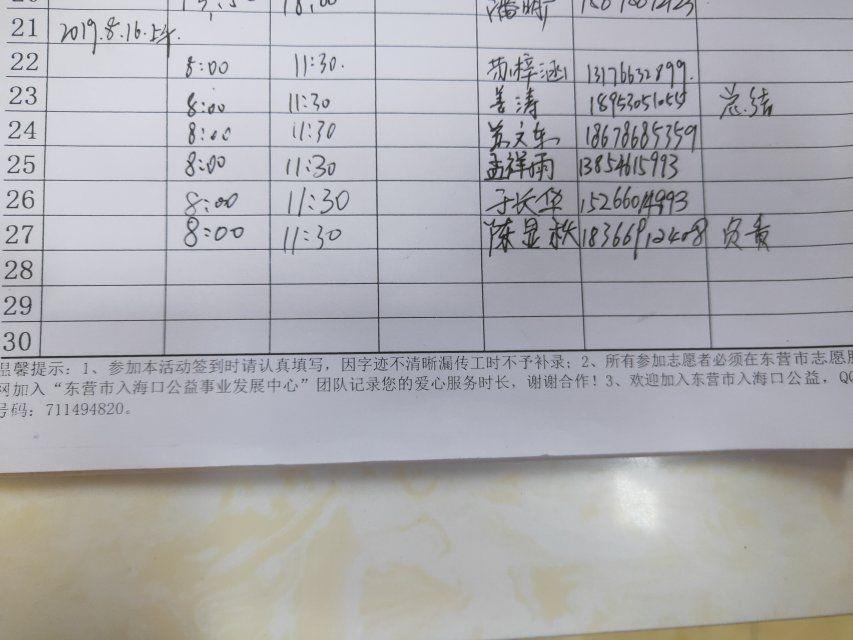 18:00
21 2019.8.16.上午
22 8:00 11:30. 苏梓涵 13176632899.
23 8:00 11:30 18953051055 总结
24 8:00 11:30 18678685359
25 8:00 11:30 孟祥雨 13854615993
26 8:00 11:30 于长华
27 8:00 11:30 陈显 18366912408 负责
28
29
30
温馨提示：1、参加本活动签到时请认真填写，因字迹不清晰漏传工时不予补录；2、所有参加志愿者必须在东营市志愿
网加入“东营市入海口公益事业发展中心”团队记录您的爱心服务时长，谢谢合作！3、欢迎加入东营市入海口公益，QQ
号码：711494820。